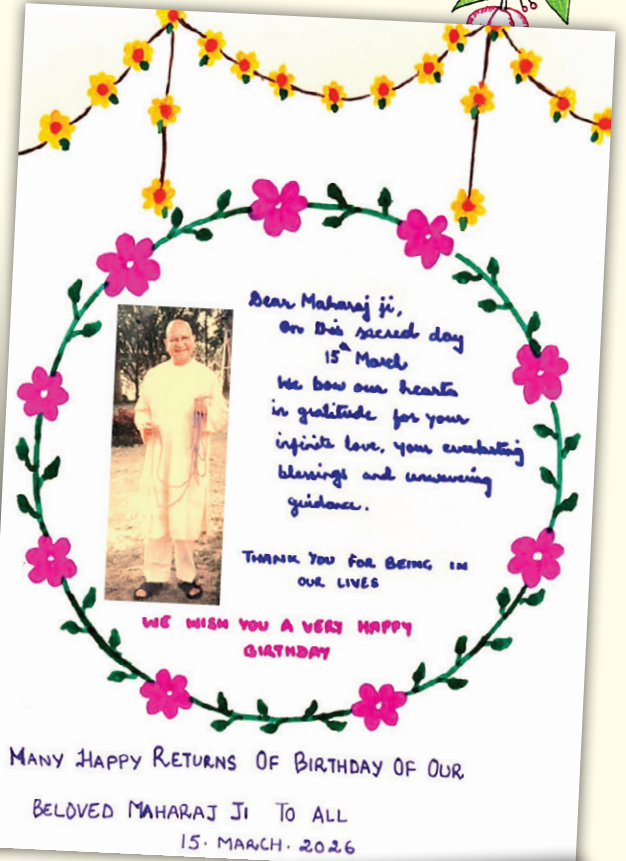 Dear Maharaj ji,
On this sacred day
15th March
We bow our hearts
in gratitude for your
infinite love, your everlasting
blessings and unwavering
guidance.
THANK YOU FOR BEING IN
OUR LIVES
WE WISH YOU A VERY HAPPY
BIRTHDAY
MANY HAPPY RETURNS OF BIRTHDAY OF OUR
BELOVED MAHARAJ JI TO ALL
15. MARCH. 2026